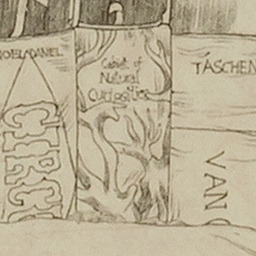 NOEL DANIEL
CIRCU
Cabinet of
Natural
Curiosities
TASCHEN
VAN